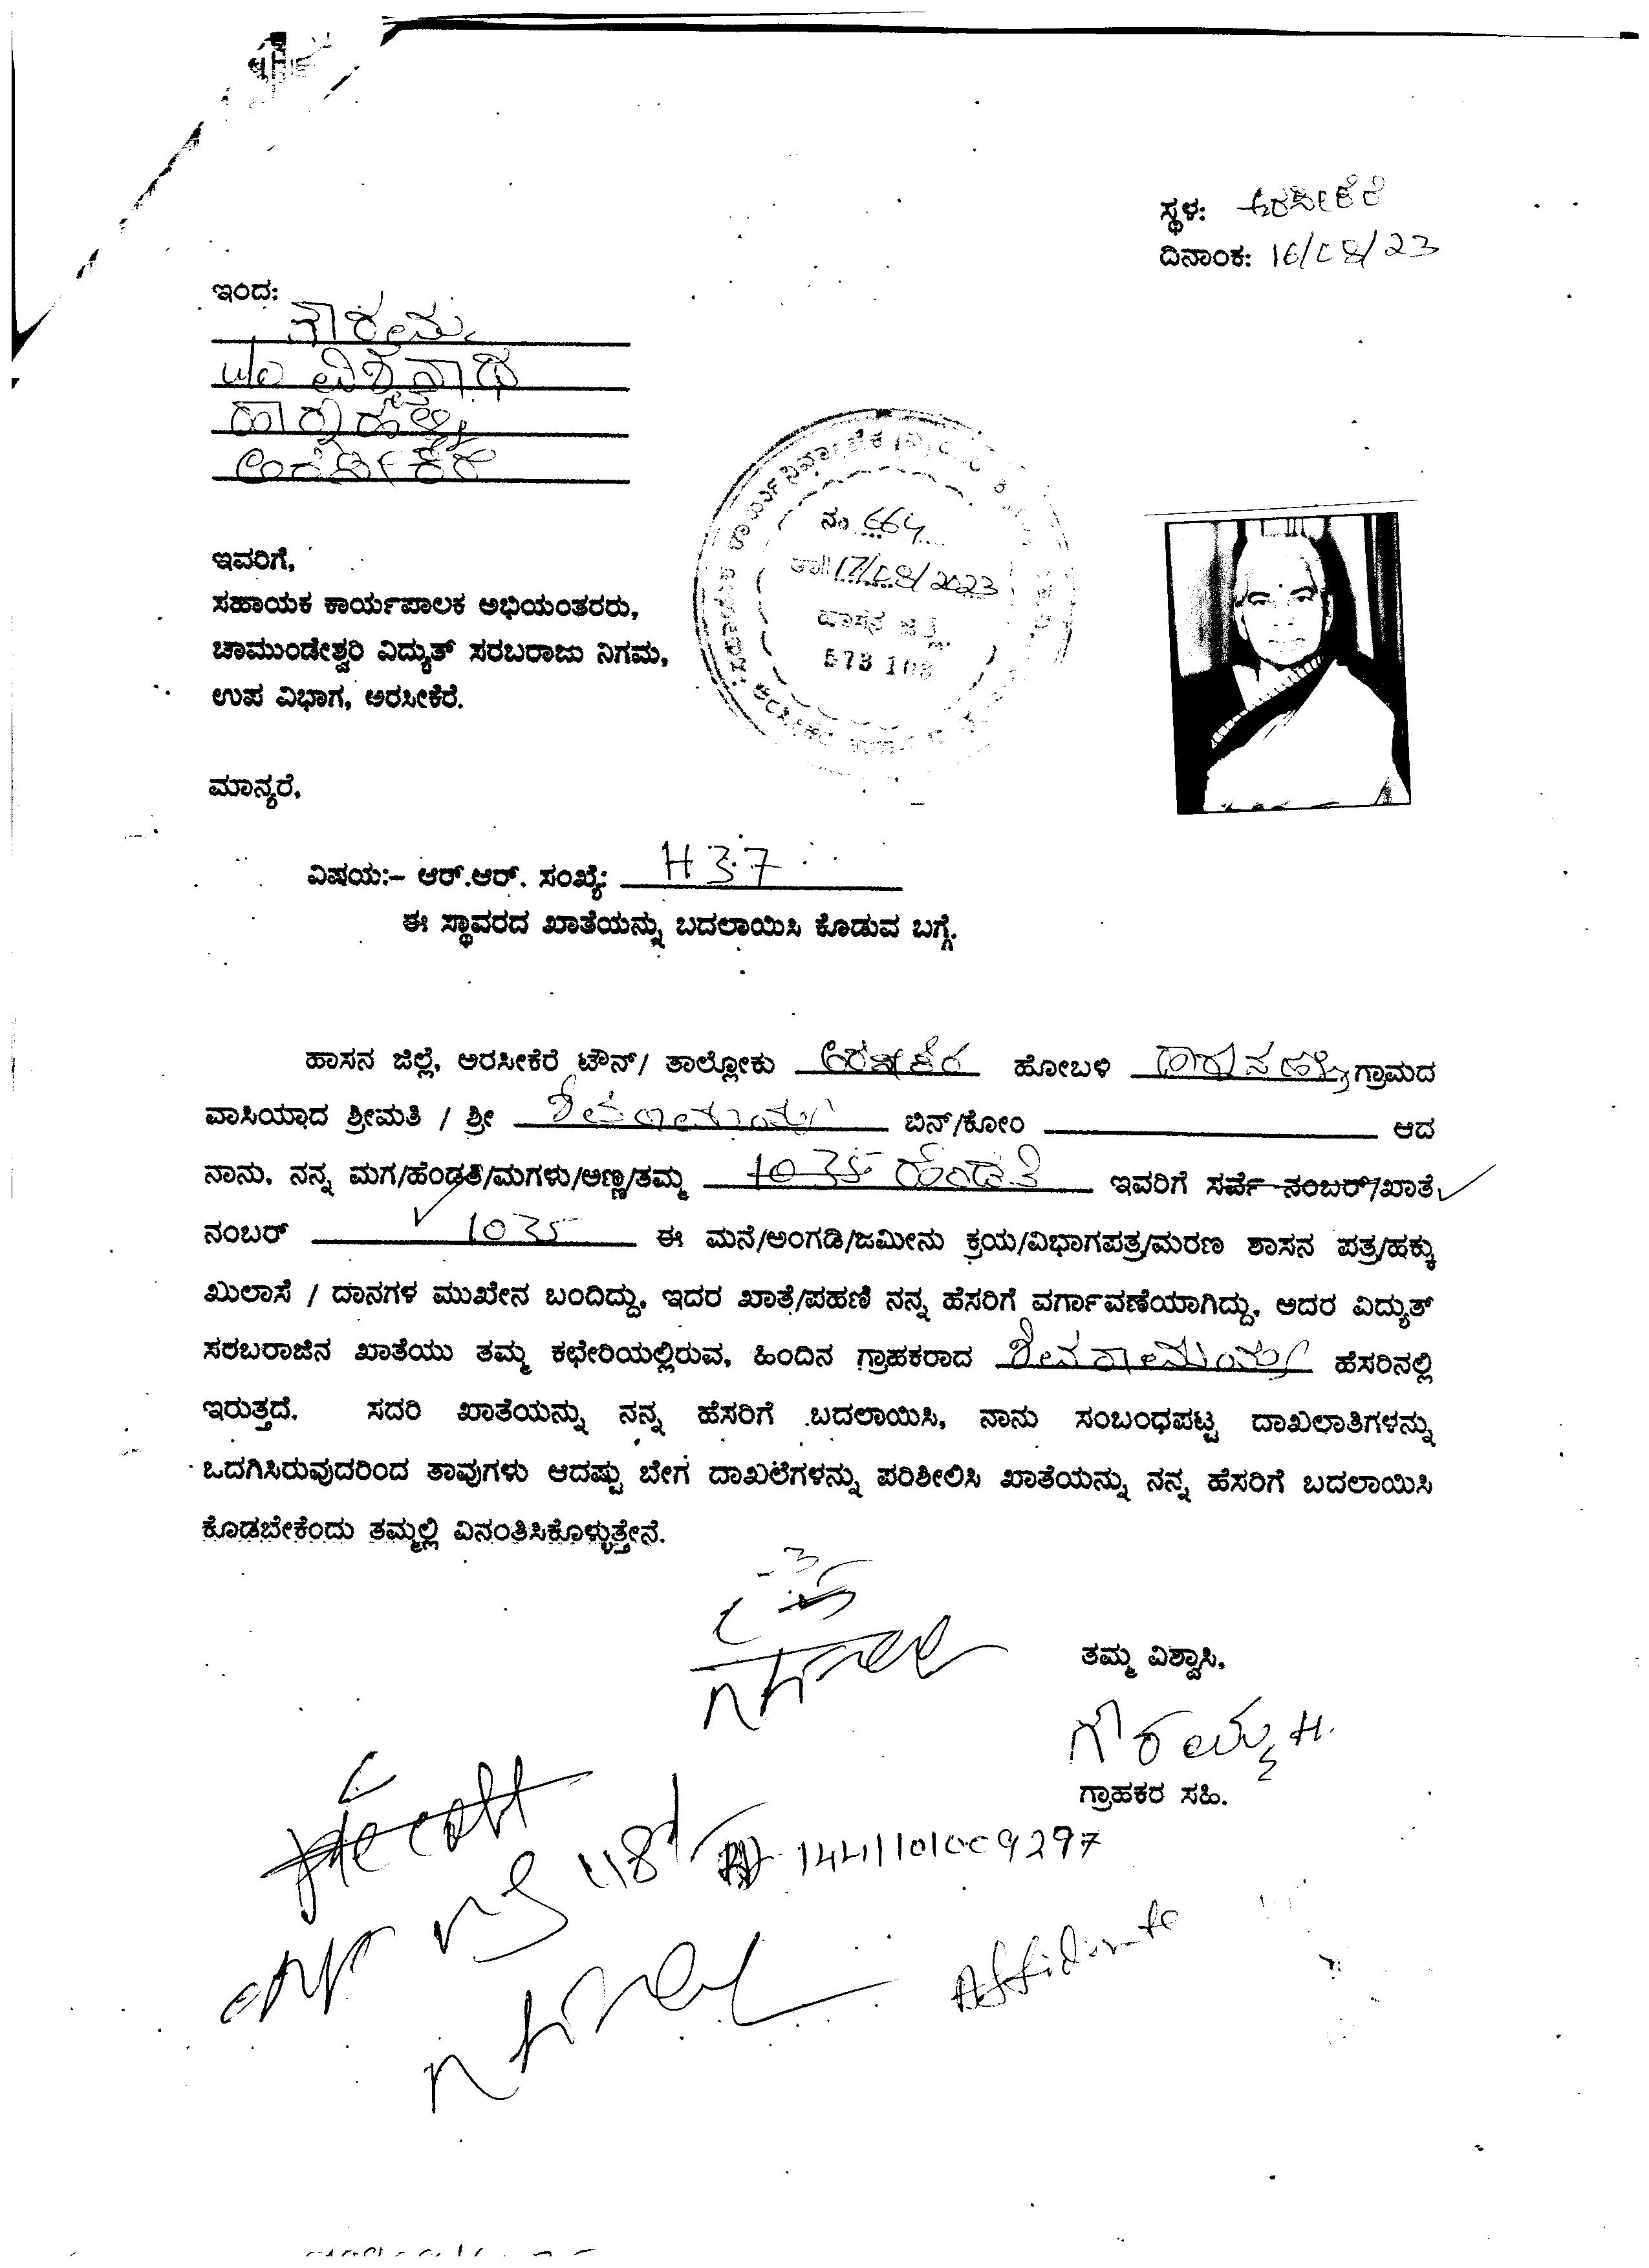 ಸ್ಥಳ: ಅರಸೀಕೆರೆ
ದಿನಾಂಕ: 16/08/23
ಇಂದ:
ಗೌರಮ್ಮ
ವಿಶ್ವನಾಥ
ಅರಸೀಕೆರೆ
ನಂ 664
ತಾ॥ 17/08/2023
ಹಾಸನ ಜಿಲ್ಲೆ
573 103
ಇವರಿಗೆ,
ಸಹಾಯಕ ಕಾರ್ಯಪಾಲಕ ಅಭಿಯಂತರರು,
ಚಾಮುಂಡೇಶ್ವರಿ ವಿದ್ಯುತ್ ಸರಬರಾಜು ನಿಗಮ,
ಉಪ ವಿಭಾಗ, ಅರಸೀಕೆರೆ.
ಮಾನ್ಯರೆ,
ವಿಷಯ:– ಆರ್.ಆರ್. ಸಂಖ್ಯೆ: H37
ಈ ಸ್ಥಾವರದ ಖಾತೆಯನ್ನು ಬದಲಾಯಿಸಿ ಕೊಡುವ ಬಗ್ಗೆ.
ಹಾಸನ ಜಿಲ್ಲೆ, ಅರಸೀಕೆರೆ ಟೌನ್/ ತಾಲ್ಲೋಕು ಅರಸೀಕೆರೆ ಹೋಬಳಿ ಗ್ರಾಮದ
ವಾಸಿಯಾದ ಶ್ರೀಮತಿ / ಶ್ರೀ ಬಿನ್/ಕೋಂ ಆದ
ನಾನು, ನನ್ನ ಮಗ/ಹೆಂಡತಿ/ಮಗಳು/ಅಣ್ಣ/ತಮ್ಮ 1035 ಹೆಂಡತಿ ಇವರಿಗೆ ಸರ್ವೆ ನಂಬರ್/ಖಾತೆ
ನಂಬರ್ 1035 ಈ ಮನೆ/ಅಂಗಡಿ/ಜಮೀನು ಕ್ರಯ/ವಿಭಾಗಪತ್ರ/ಮರಣ ಶಾಸನ ಪತ್ರ/ಹಕ್ಕು
ಖುಲಾಸೆ / ದಾನಗಳ ಮುಖೇನ ಬಂದಿದ್ದು, ಇದರ ಖಾತೆ/ಪಹಣಿ ನನ್ನ ಹೆಸರಿಗೆ ವರ್ಗಾವಣೆಯಾಗಿದ್ದು, ಅದರ ವಿದ್ಯುತ್
ಸರಬರಾಜಿನ ಖಾತೆಯು ತಮ್ಮ ಕಛೇರಿಯಲ್ಲಿರುವ, ಹಿಂದಿನ ಗ್ರಾಹಕರಾದ ಹೆಸರಿನಲ್ಲಿ
ಇರುತ್ತದೆ. ಸದರಿ ಖಾತೆಯನ್ನು ನನ್ನ ಹೆಸರಿಗೆ ಬದಲಾಯಿಸಿ, ನಾನು ಸಂಬಂಧಪಟ್ಟ ದಾಖಲಾತಿಗಳನ್ನು
ಒದಗಿಸಿರುವುದರಿಂದ ತಾವುಗಳು ಆದಷ್ಟು ಬೇಗ ದಾಖಲೆಗಳನ್ನು ಪರಿಶೀಲಿಸಿ ಖಾತೆಯನ್ನು ನನ್ನ ಹೆಸರಿಗೆ ಬದಲಾಯಿಸಿ
ಕೊಡಬೇಕೆಂದು ತಮ್ಮಲ್ಲಿ ವಿನಂತಿಸಿಕೊಳ್ಳುತ್ತೇನೆ.
ತಮ್ಮ ವಿಶ್ವಾಸಿ,
ಗೌರಮ್ಮ H.
ಗ್ರಾಹಕರ ಸಹಿ.